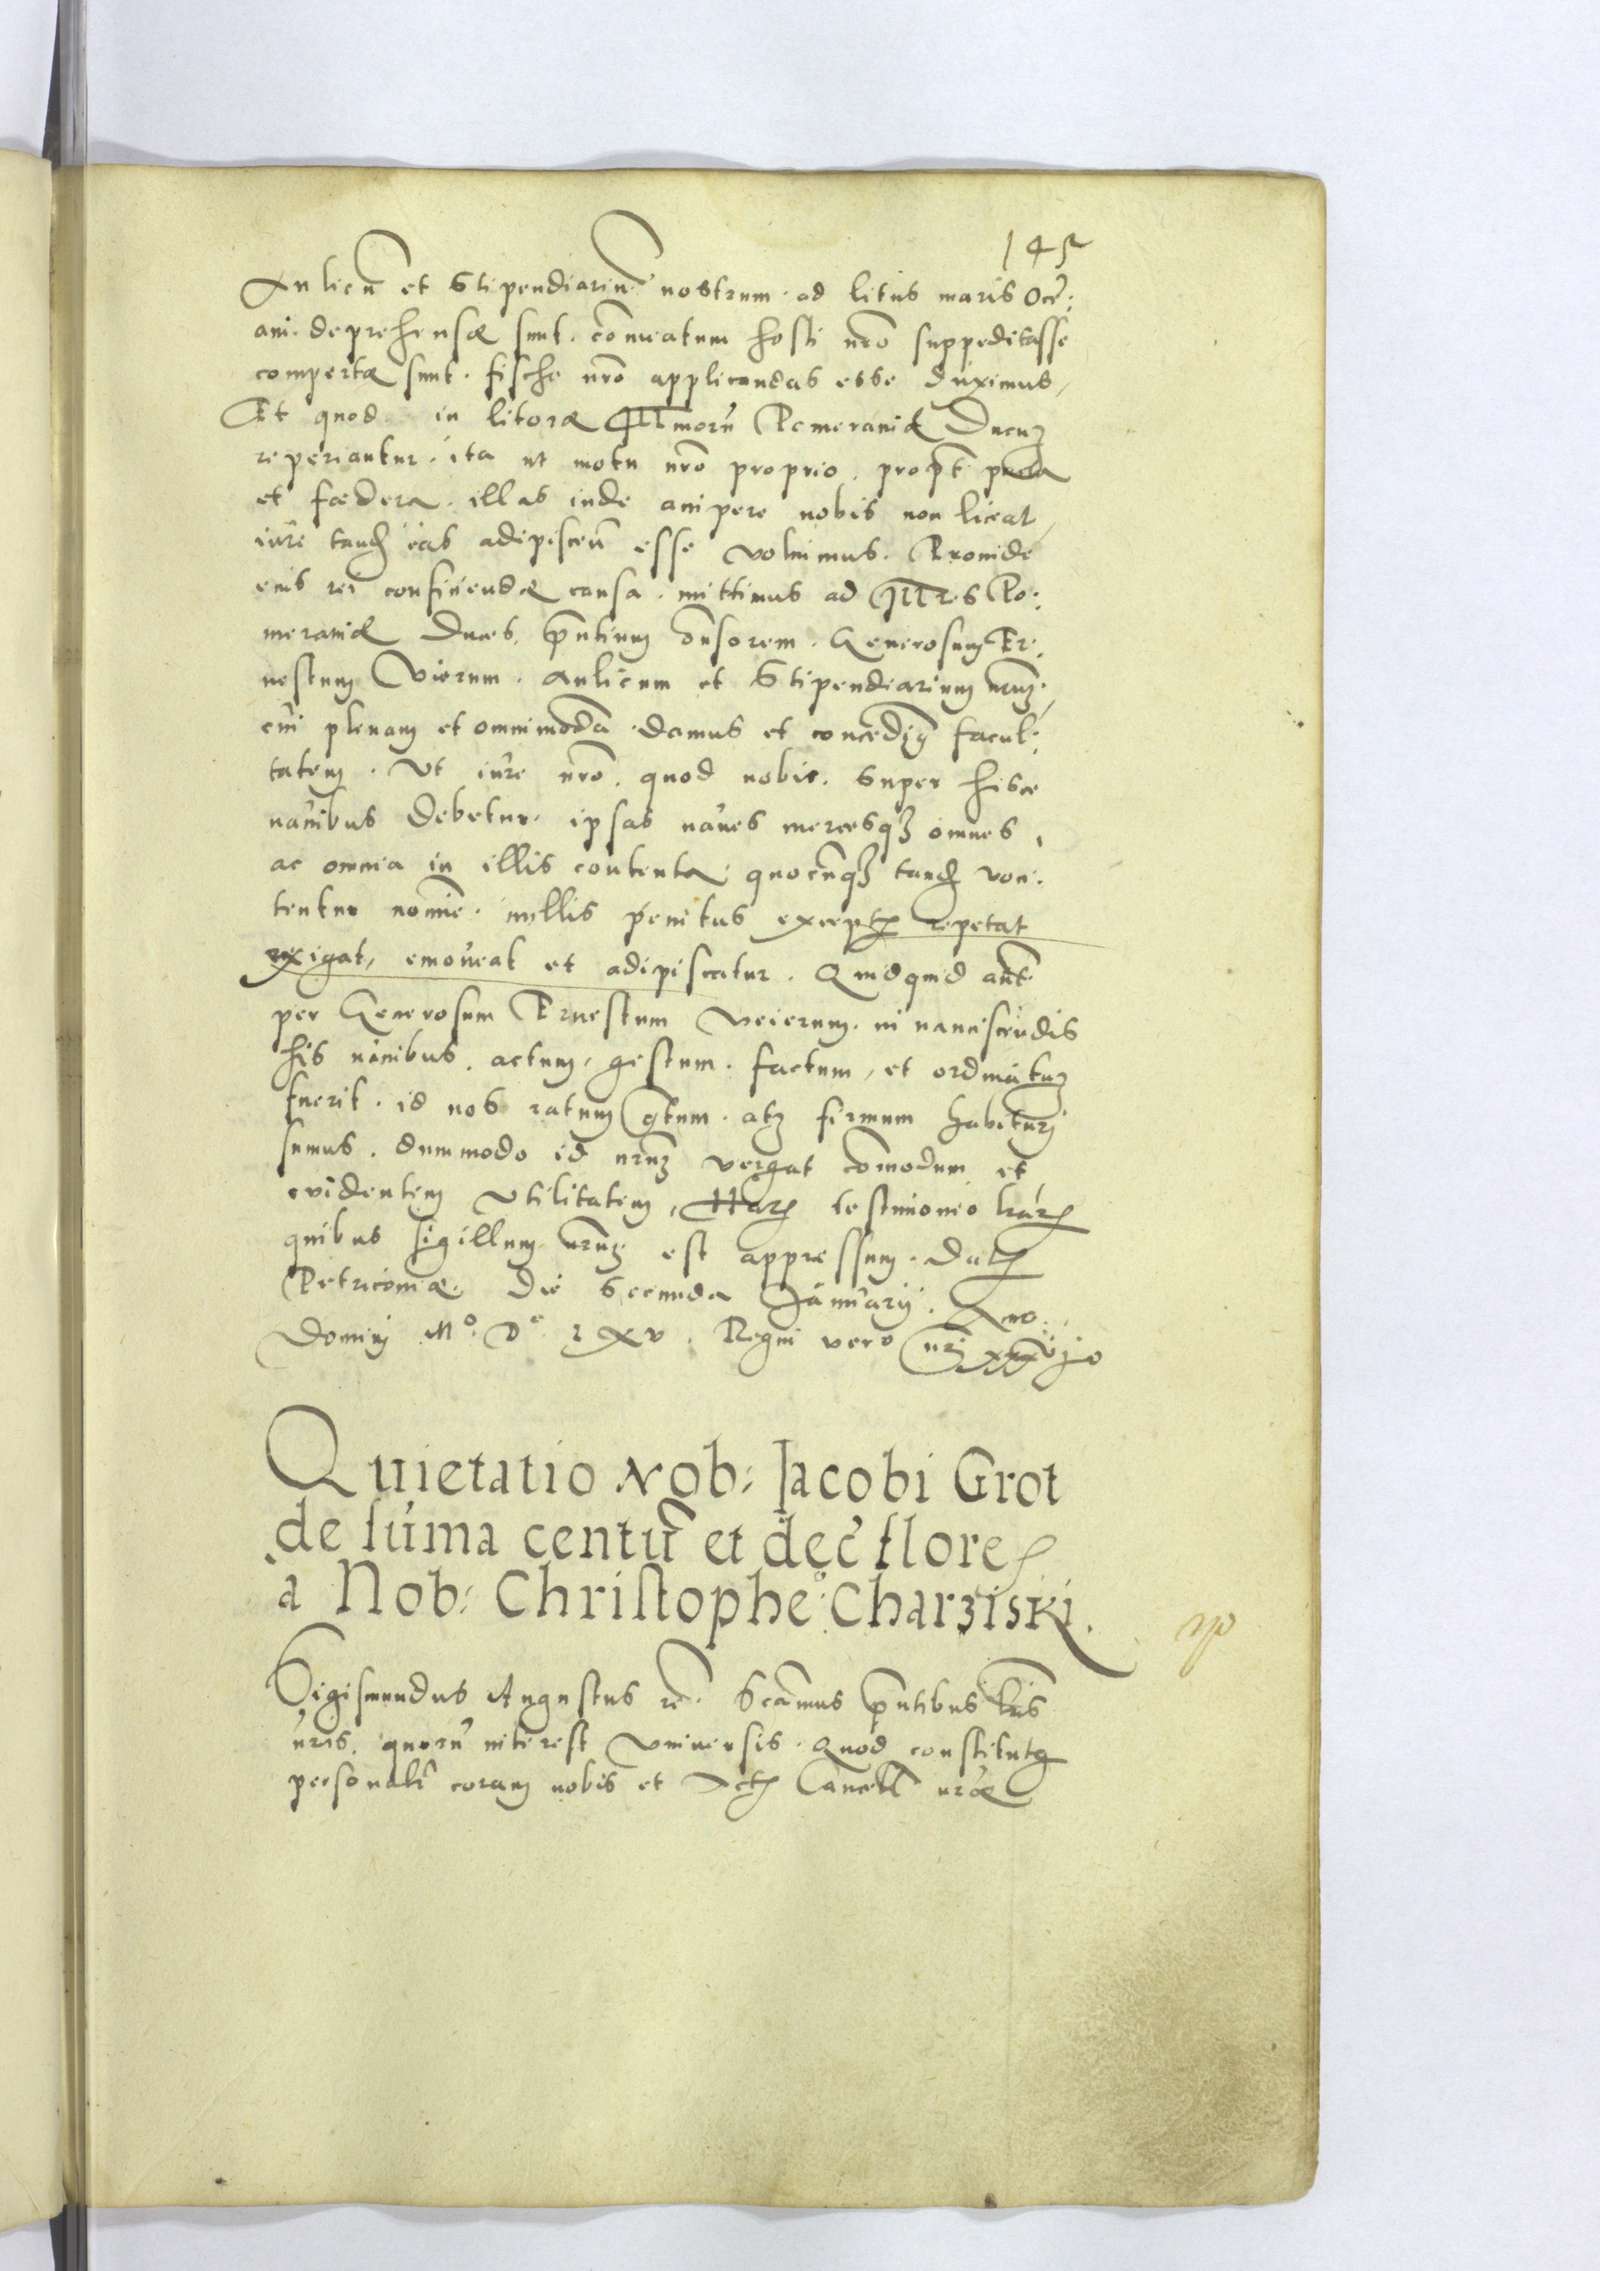 145
Aulicũ et Stipendiariũ nostrum ad litus maris Oce:
ani deprehensæ sunt. cõmeatum hosti nrõ suppeditasse
compertæ sunt. fische nrõ applicandas esse duximus,
Et quod in litoræ Illmorũ Pomeraniæ Ducuʒ
reperiantur. ita ut motu nrõ proprio. propt pacta
et fœdera. illas inde accipere nobis non liceat,
iure tandʒ eas adipiscẽn esse voluimus. Proinde
eius rei conficiendæ causa. mittimus ad Illres Po:
meraniæ Duces. pñtium õnsorem. Generosum Er:
nestum Vierum. Aulicum et Stipendiarium nrũʒ,
cui plenam et omnimodã damus et concedimꝰ facul:
tatem. Ut iure nrõ. quod nobis. super hisce
nauibus debetur. ipsas naues mercesqʒ omnes,
ac omnia in illis contenta quocũqʒ tandʒ voci:
tentur nomie. nullis penitus exceptꝭ repetat
exigat, emoueat et adipiscatur. Quidquid aũt
per Generosum Ernestum Veierum. in nanciscendis
his nauibus. actum, gestum. factum, et ordinatuʒ
fuerit. id nos ratum gtum. atqʒ firmum habituri
sumus. dummodo id nrũʒ vergat cõmodum et
euidentem Utilitatem, Harꝭ testimonio lrarꝭ
quibus sigillum nrũʒ est appressum. Datꝭ
Petricouiæ. Die Secunda Januarij. Ano.
Domini Mº. Dº. LXV. Regni vero nri xxxvjo
Quietatio Nob: Jacobi Grot
de suma centũ et dec̃ floreꝭ
a Nob: Christophe: Charziski.
Sigismundus Augustus rẽ. Sc̃amus pñtibus lris
nris. quorũ interest Uniuersis. Quod constitutꝰ
personalr̃ coram nobis et Actꝭ Cancell nræ